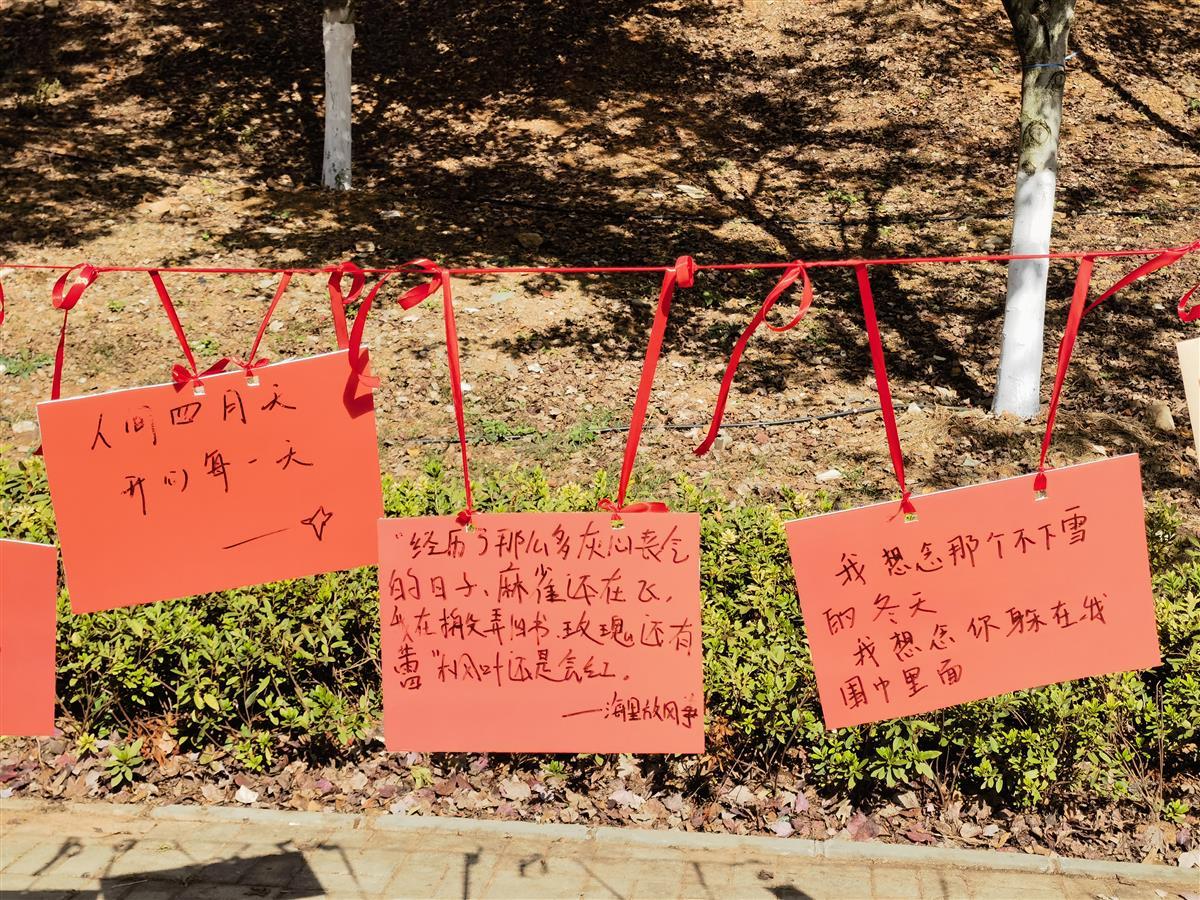 人间四月天
我们每一天
"经历了那么多灰心丧气
的日子、麻雀还在飞,
我在摘失弄旧书、玫瑰还有
蕾"枫叶还是会红。
——海里放风筝
我想念那个不下雪
的冬天
我想念你躲在我
围巾里面